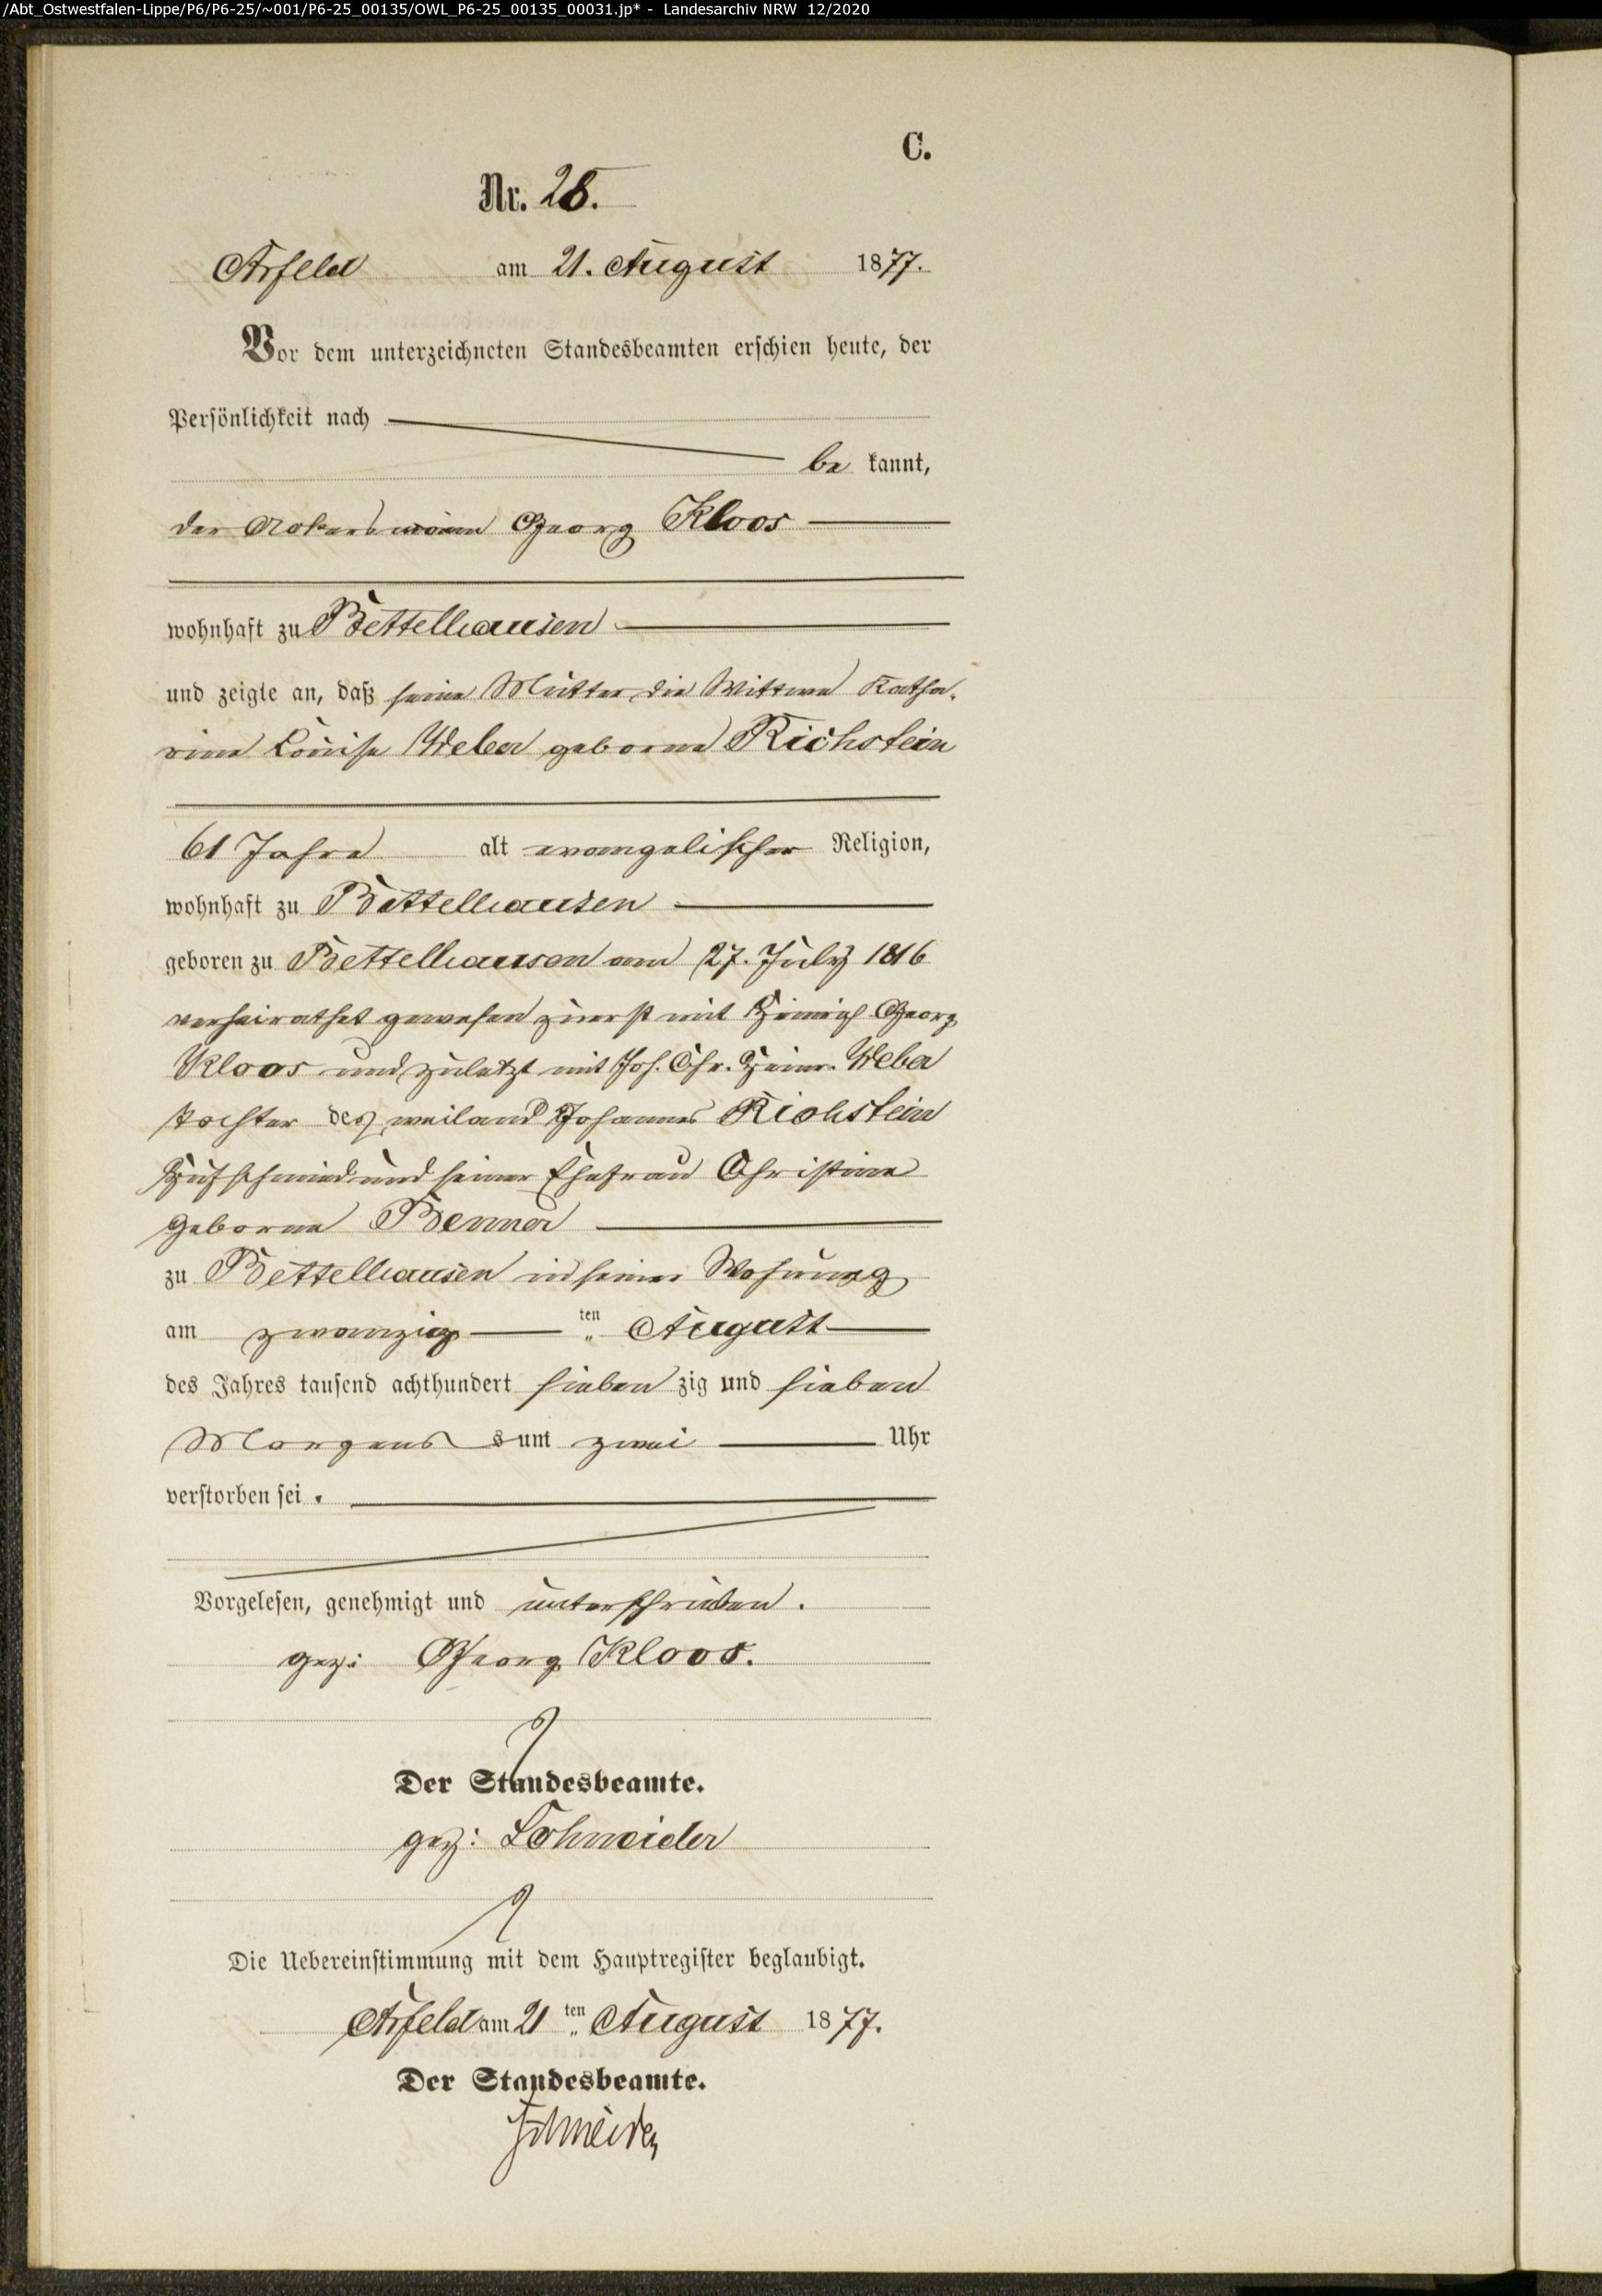 /Abt_Ostwestfalen-Lippe/P6/P6-25/~001/P6-25_00135/OWL_P6-25_00135_00031.jp* - Landesarchiv NRW 12/2020
C.
Nr. 28.
Arfeld am 21. August 1877.
Vor dem unterzeichneten Standesbeamten erschien heute, der
Persönlichkeit nach
be kannt,
der Ackersmann Georg Kloos
wohnhaft zu Bettelhausen
und zeigte an, daß seine Mutter die Wittwe Katha-
rine Louise Weber geborne Richstein
61 Jahre alt evangelischer Religion,
wohnhaft zu Bettelhausen
geboren zu Bettelhausen am 27. July 1816
verheirathet gewesen zuerst mit Heinrich Georg
Kloos und zuletzt mit Joh. Chr. Heinr. Weber
Tochter des weiland Johannes Richstein
Hufschmied und seiner Ehefrau Christine
geborne Benner
zu Bettelhausen in seiner Wohnung
am zwanzig ten August
des Jahres tausend achthundert sieben zig und sieben
Morgens um zwei Uhr
verstorben sei.
Vorgelesen, genehmigt und unterschrieben.
gez: Georg Kloos.
Der Standesbeamte.
gez: Schneider
Die Uebereinstimmung mit dem Hauptregister beglaubigt.
Arfeld am 21 ten August 1877.
Der Standesbeamte.
Schneider